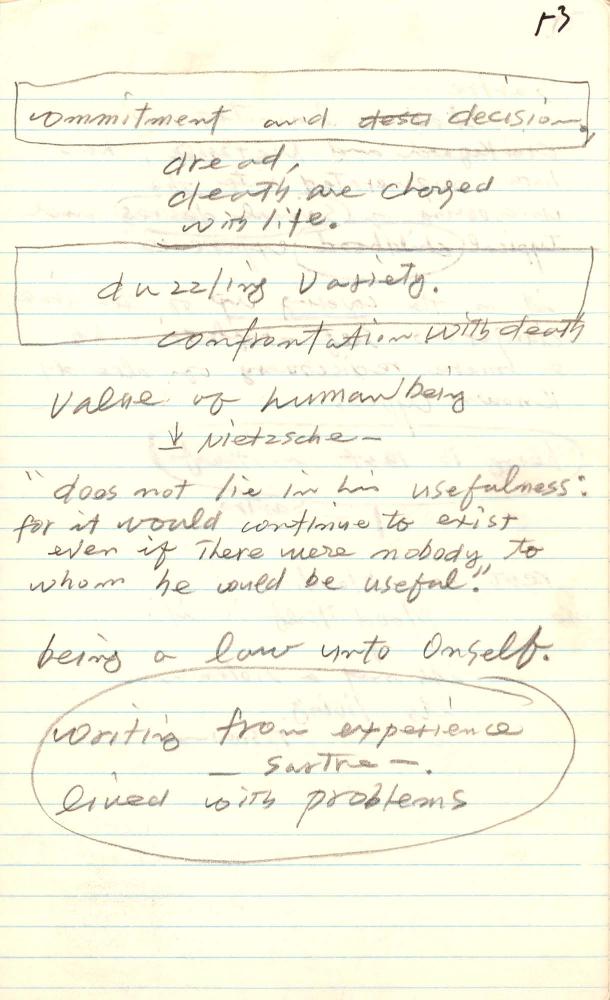 53
commitment and desci decision.
dread,
death are charged
with life.
duzzling variety.
confrontation with death
value of human being
↓ Nietzsche —
"does not lie in his usefulness:
for it would continue to exist
even if there were nobody to
whom he would be useful."
being a law unto Onself.
writing from experience
— Sartre —.
lived with problems